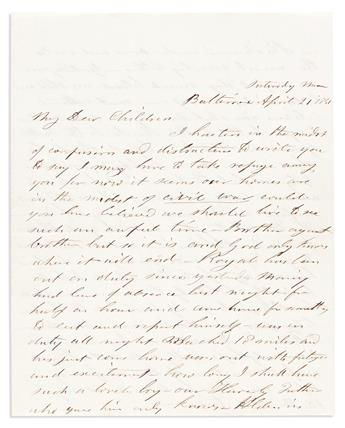 Baltimore April 21
My Dear Children
I hasten in the midst
of confusion and distraction to write you
to say I may have to take refuge among
you for now it seems our homes are
in the midst of civil war could
you have believed we should live to see
such an awful time - Brother against
brother but so it is and God only knows
where it will end - Royal has been
out on duty since yesterday Morning
had leave of absence last night for
half an hour and came home for something
to eat and repart himself - was on
duty all night marched 18 miles and
has just come home worn out with fatigue
and excitement - how long I shall have
such a lovely boy - our Heavenly Father
who gave him only knows